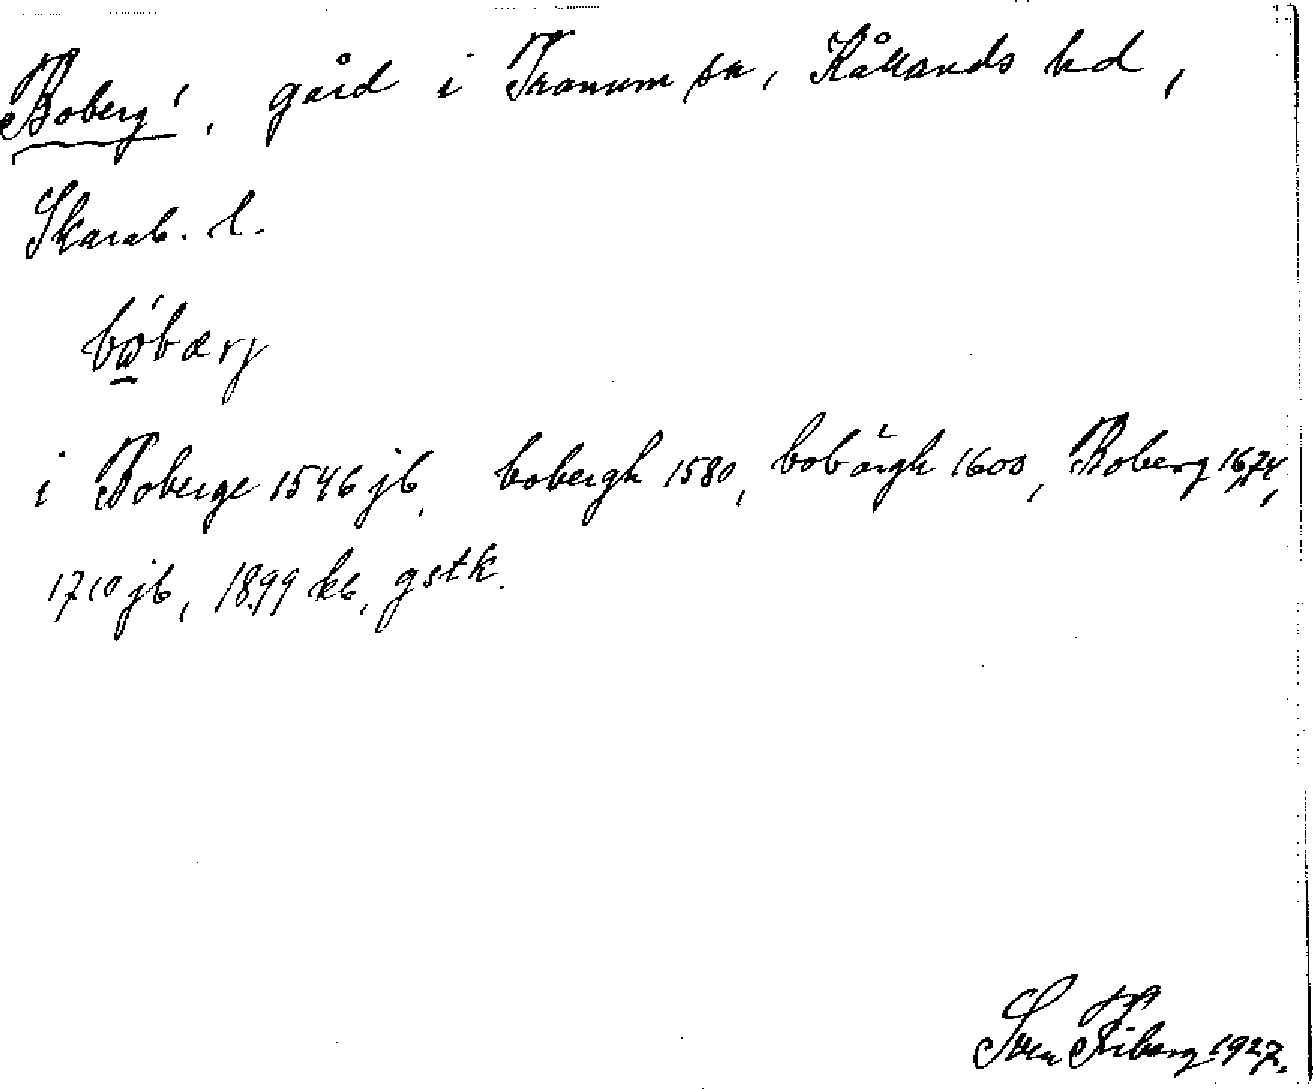 Boberg', gård i Tranum sn, Kållands hd,
Skarab. l.
bǿbærj
i Boberge 1546 jb, bobergh 1580, bobärgh 1600, Boberg 1674,
1710 jb, 1899 kb, gstk.
Sven Friberg 1927.